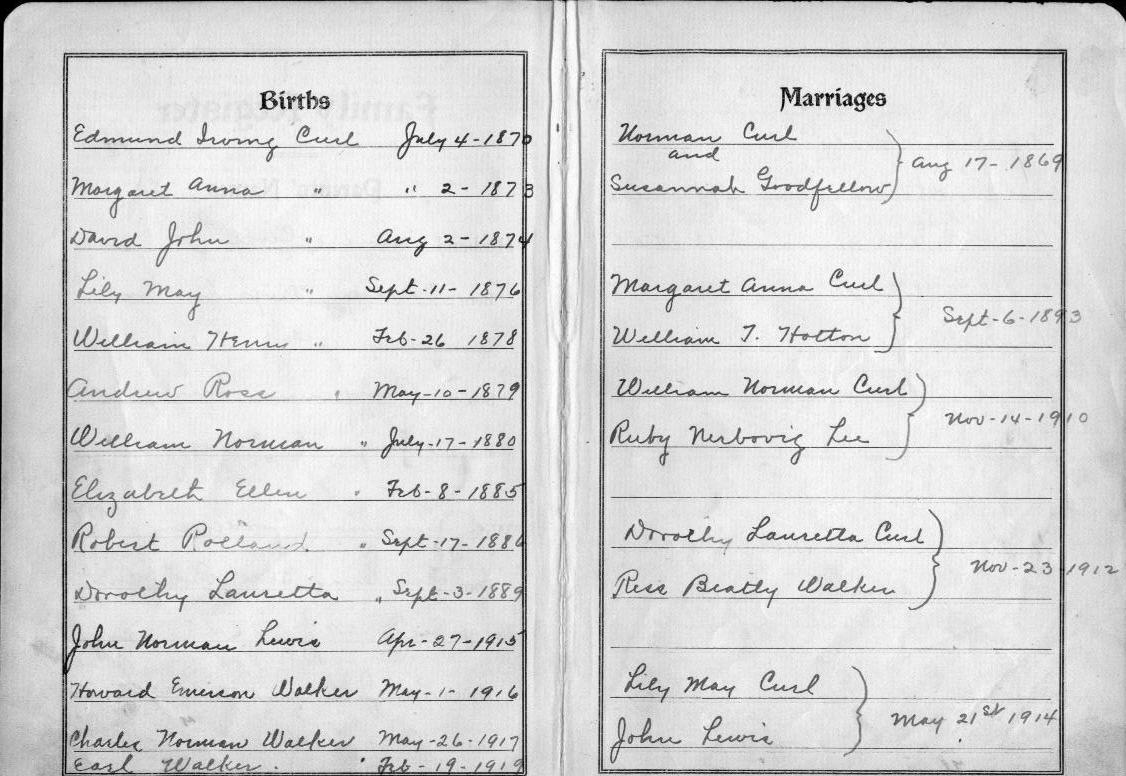 Births
Edmund Irving Curl July 4-1870
Margaret Anna " " 2-1873
David John " Aug 2-1874
Lily May " Sept-11-1876
William Henry " Feb-26 1878
Andrew Ross " May-10-1879
William Norman " July-17-1880
Elizabeth Ellen " Feb-8-1885
Robert Rolland " Sept-17-1886
Dorothy Lauretta " Sept-3-1889
John Norman Lewis Apr-27-1915
Howard Emerson Walker May-1-1916
Charles Norman Walker May-26-1917
Earl Walker. " Feb-19-1919
Marriages
Norman Curl
and
Susannah Goodfellow
Aug 17-1869
Margaret Anna Curl
William T. Hotton
Sept-6-1893
William Norman Curl
Ruby Lee
Nov-14-1910
Dorothy Lauretta Curl
Beatty Walker
Nov-23-1912
Lily May Curl
John Lewis
May 21st 1914